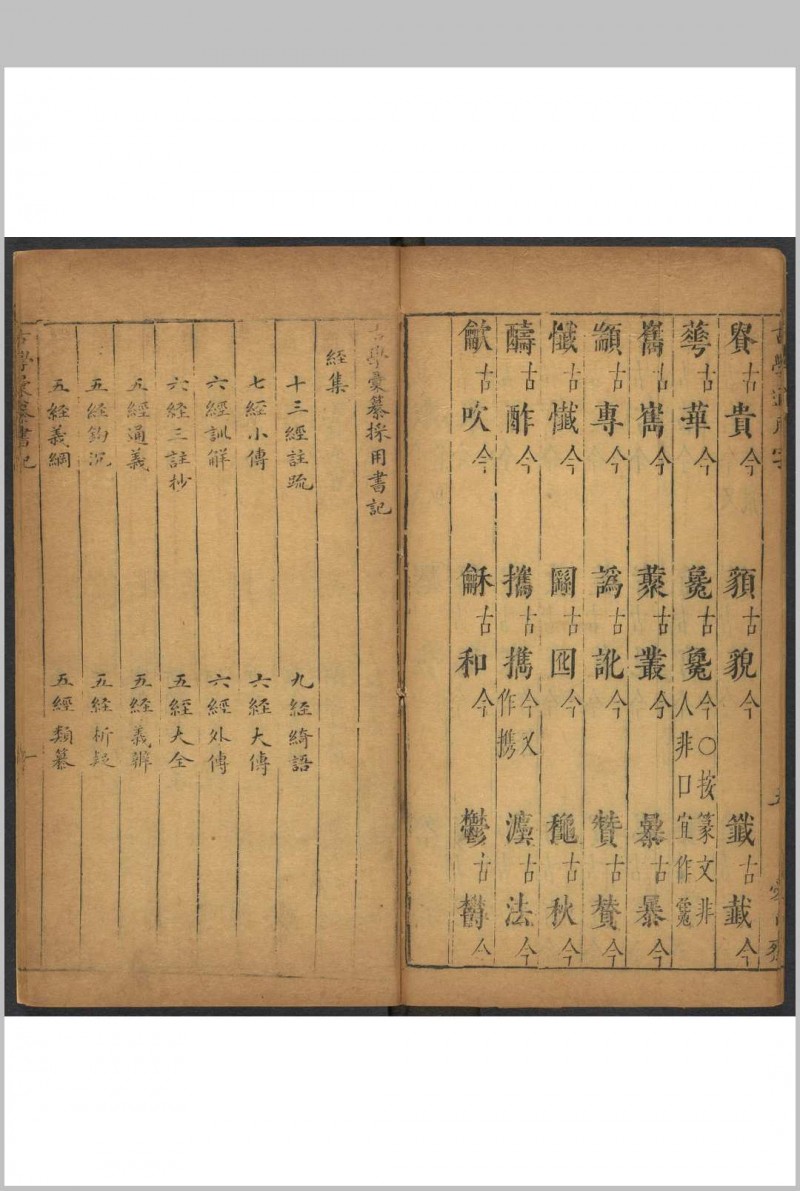 古貴今 貌古貌今 古今
華古華今 毚古毚今○按篆文非人非口宜作毚
舊古今 古叢今 暴古暴今
古專今 譌古訛今 古贊今
懺古懺今 古囮今 龝古秋今
醻古酢今 攜古擕今又作携 灋古法今
龡古吹今 龢古和今 鬱古欝今
古學彙纂採用書記
經集
十三經註疏 九經綺語
七經小傳 六經大傳
六經訓解 六經外傳
六經三註抄 五經大全
五經通義 五經義辨
五經鈎沉 五經析疑
五經義綱 五經類纂
古學彙纂書記 一